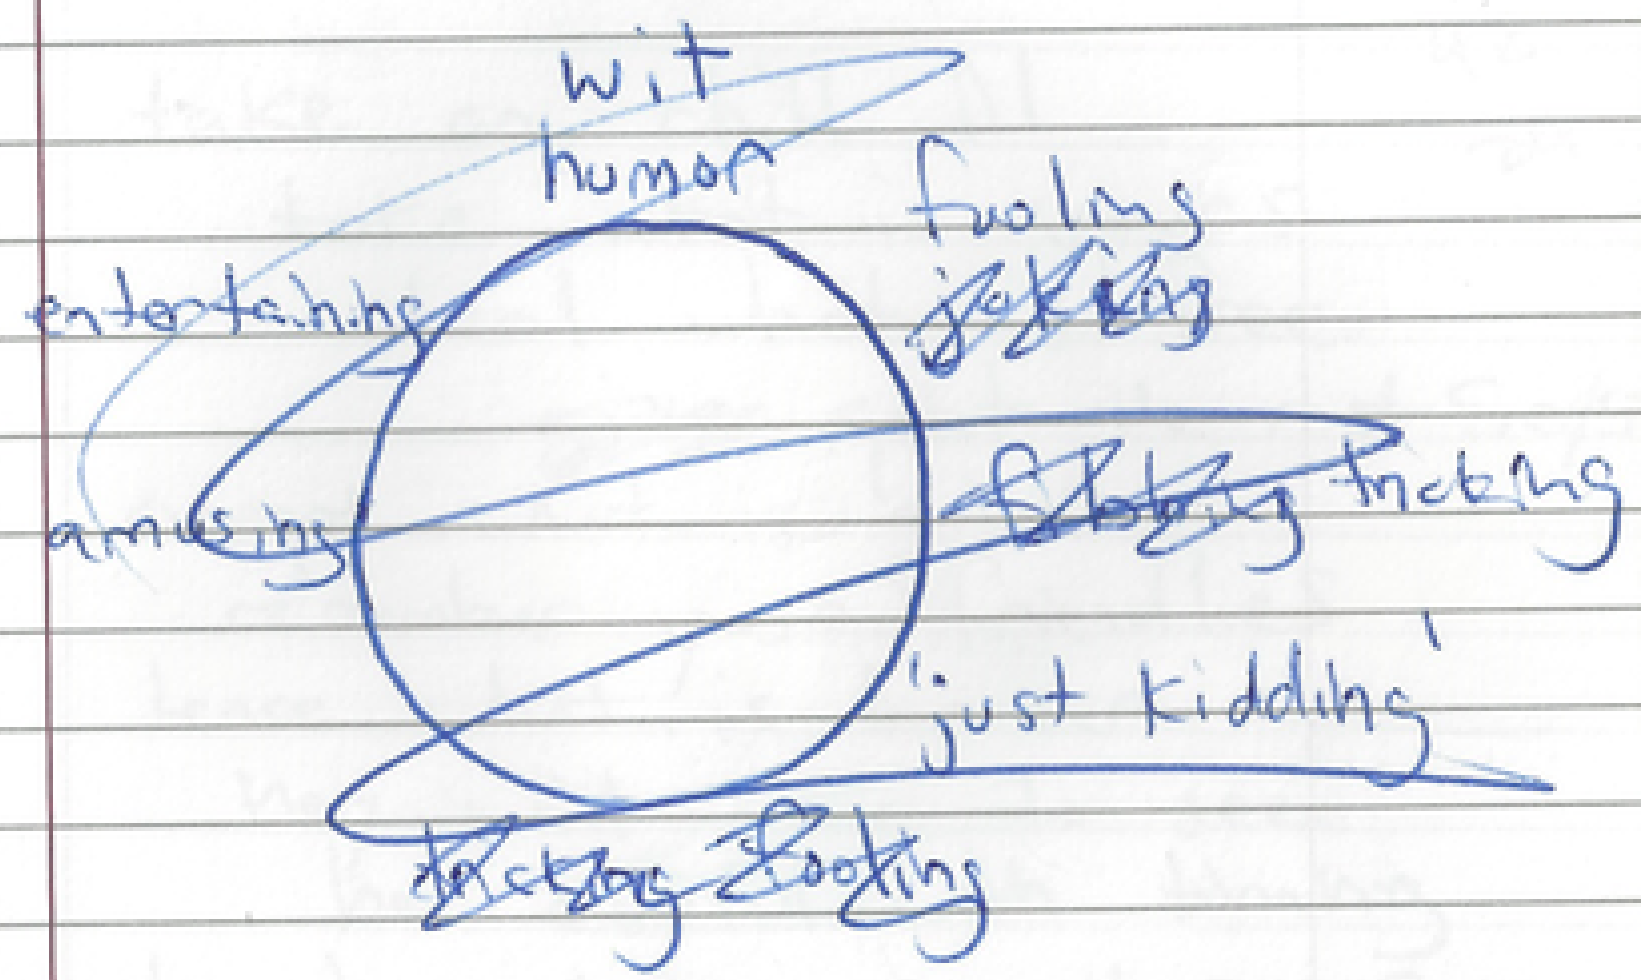 wit
humor
fooling
joking
entertaining
fooling tricking
amusing
'just kidding'
tricking fooling